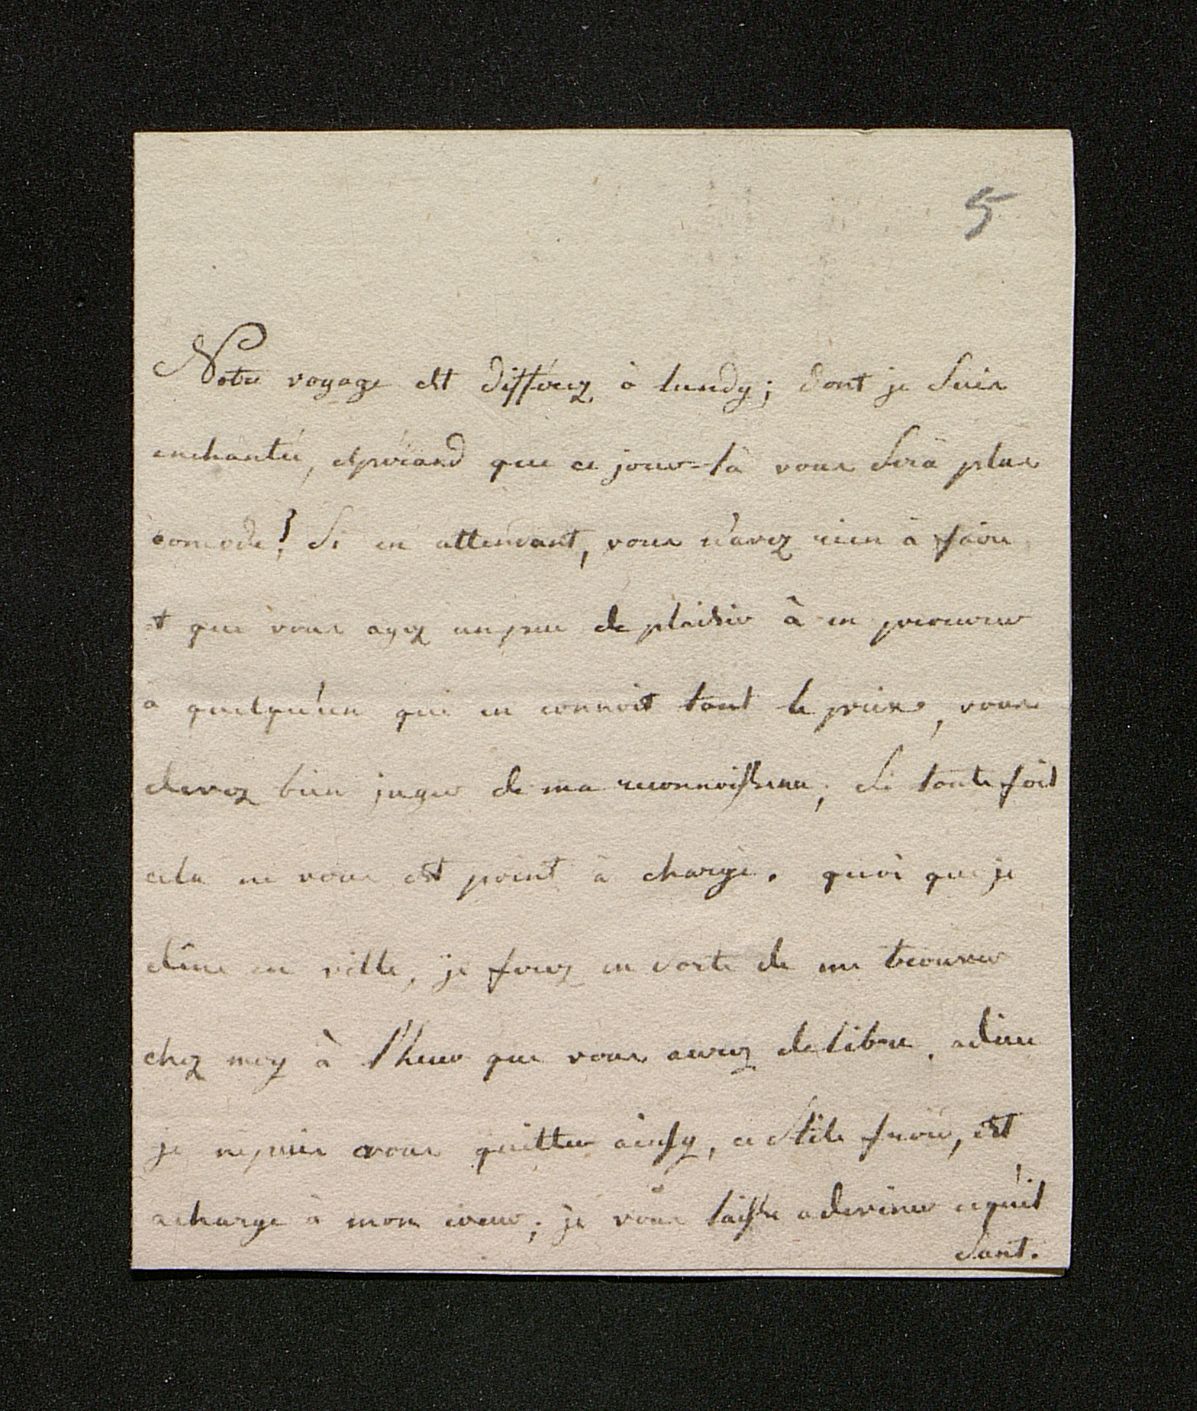 5
Notre voyage est differez à lundy; dont je suis
enchantée, esperand que ce jour-là vous sera plus
comode! Si en attendant, vous n'avez rien à faire
et que vous ayez un peu de plaisir à en procurer
a quelqu'un qui en connoit tout le prix, vous
devez bien juger de ma reconnoissence, si toute fois
cela ne vous est point à charge. quoi que je
dine en ville, je ferez en sorte de me trouver
chez moy à l'heure que vous aurez de libre. adieu
je ne puis vous quitter ainsy, ce stile froid, est
a charge à mon coeur; je vous laisse a deviner ce qu'il
sant.